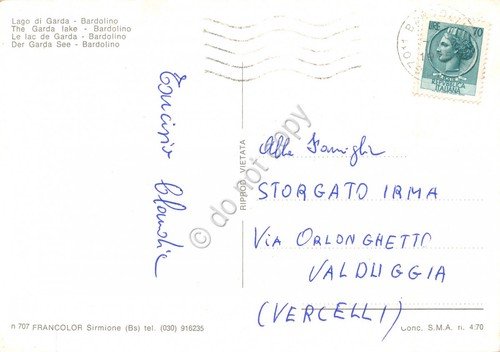 Lago di Garda - Bardolino
The Garda lake - Bardolino
Le lac de Garda - Bardolino
Der Garda See - Bardolino
LIRE 70
Tarcisio Claudia
RIPROD. VIETATA
do not copy
Alla Famiglia
STORGATO IRMA
VIA ORLONGHETTO
VALDUGGIA
(VERCELLI)
n 707 FRANCOLOR Sirmione (Bs) tel. (030) 916235
Conc. S.M.A. n. 4.70